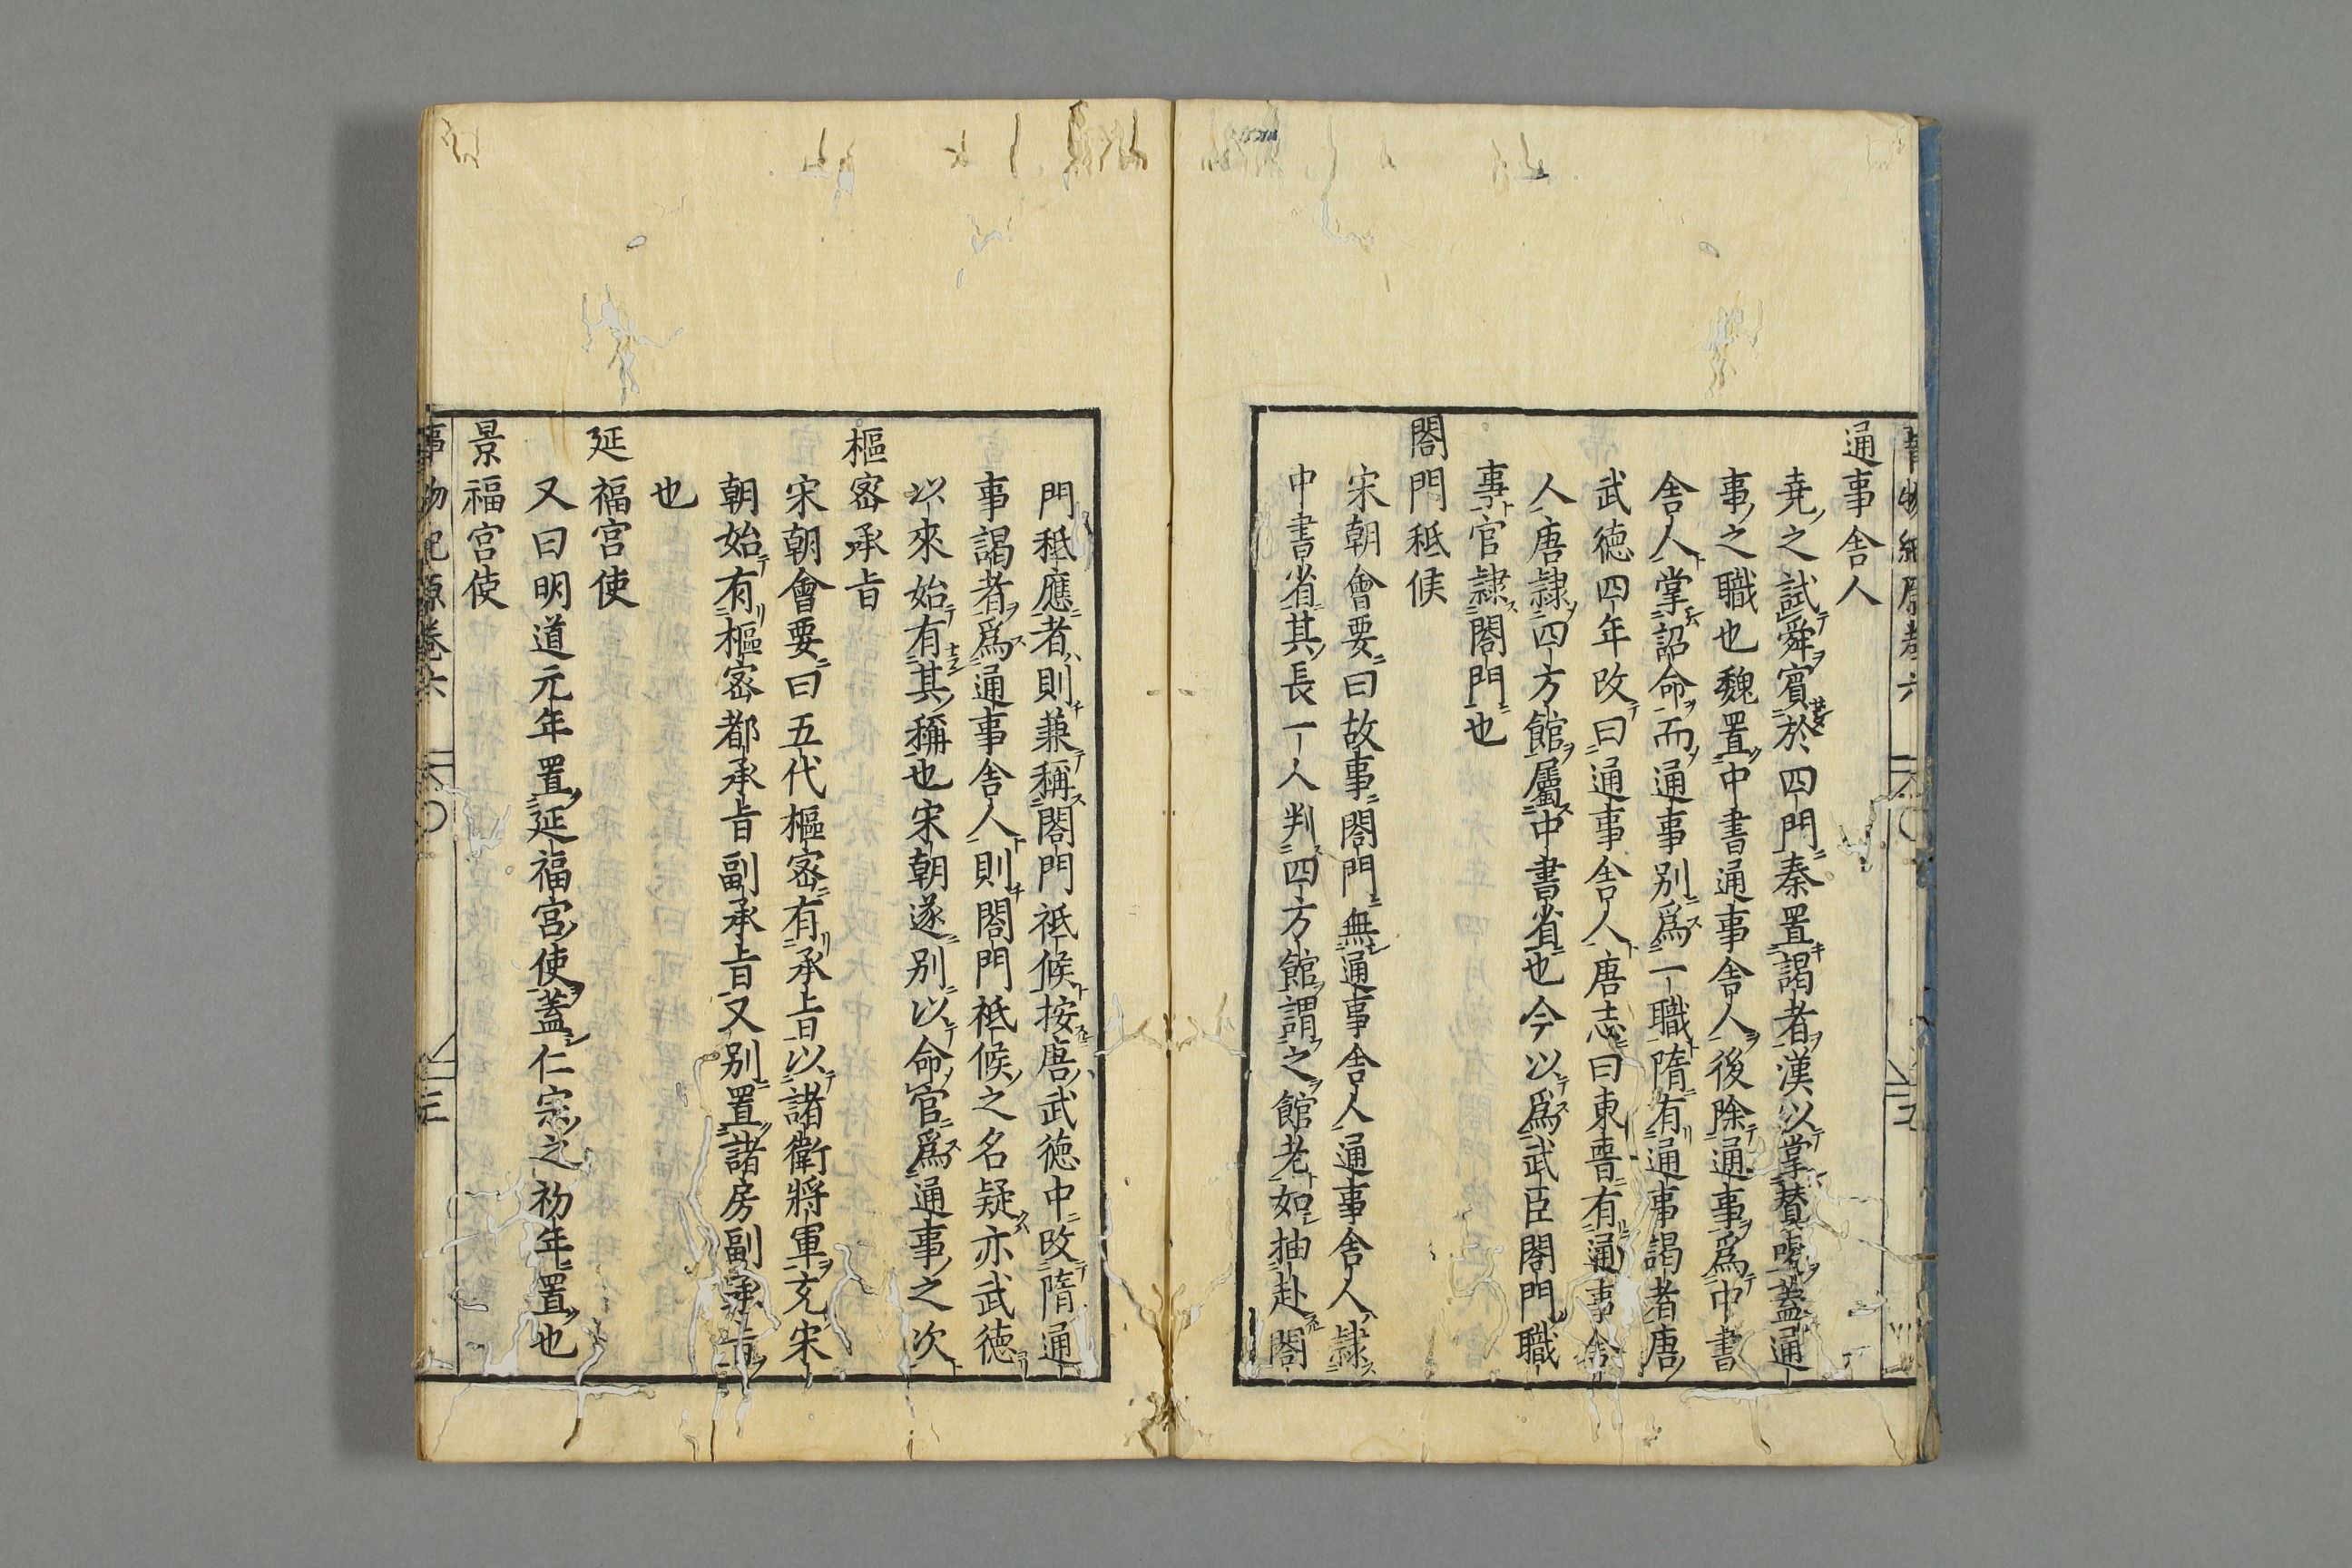 通事舎人
堯之試舜賓於四門秦置謁者漢以掌賛唱蓋通
事之職也魏置中書通事舎人後除通事爲中書
舎人掌詔命而通事别爲一職隋有通事謁者唐
武德四年改曰通事舎人唐志曰東晉有通事舎
人唐隷四方館屬中書省也今以爲武臣閤門職
事官隷閤門也
閤門秪候
宋朝會要曰故事閤門無通事舎人通事舎人隷
中書省其長一人判四方館謂之館老如抽赴閤
門秪應者則兼稱閤門祗候按唐武德中改隋通
事謁者爲通事舎人則閤門祗候之名疑亦武德
以來始有其稱也宋朝遂别以命官爲通事之次
樞宻承旨
宋朝會要曰五代樞宻有承旨以諸衛將軍充宋
朝始有樞宻都承旨副承旨又别置諸房副承旨
也
延福宫使
又曰明道元年置延福宫使蓋仁宗之初年置也
景福宫使
事物紀原卷六 三